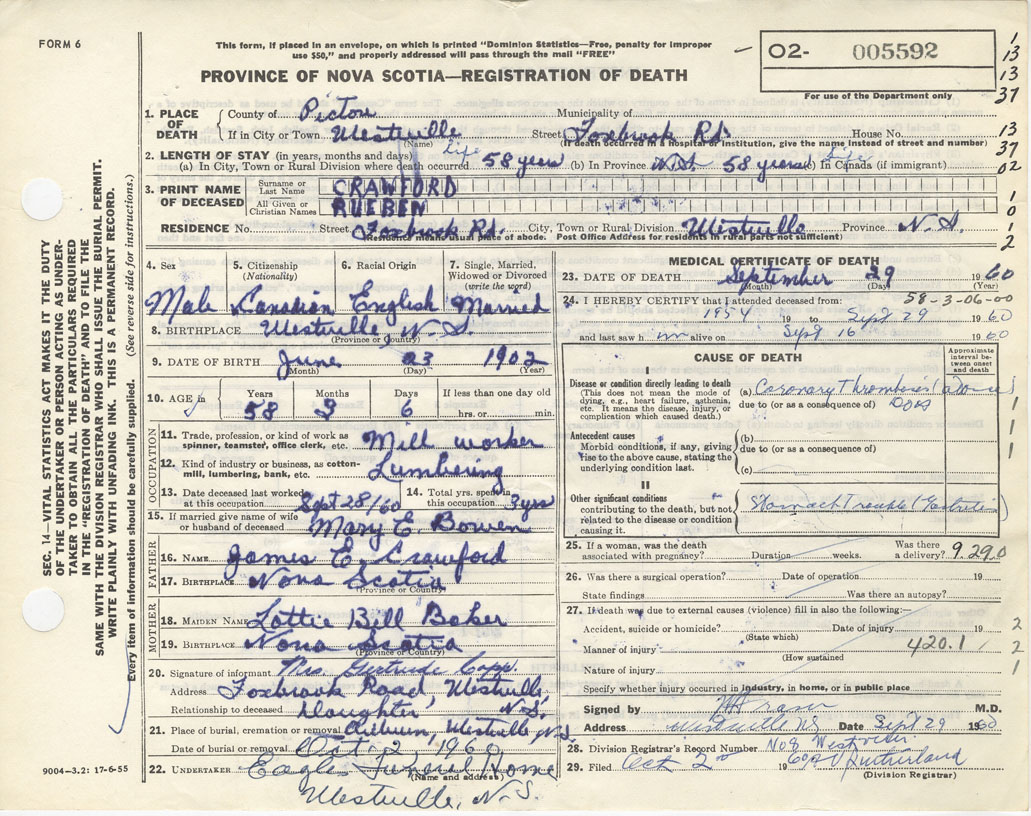 FORM 6
This form, if placed in an envelope, on which is printed "Dominion Statistics—Free, penalty for improper
use $50," and properly addressed will pass through the mail "FREE"
PROVINCE OF NOVA SCOTIA—REGISTRATION OF DEATH
O2- 005592
For use of the Department only
1
13
13
37
13
37
02
1
0
1
2
1. PLACE OF DEATH
County of Pictou Municipality of
If in City or Town Westville Street Foxbrook Rd. House No.
(Name) (If death occurred in a hospital or institution, give the name instead of street and number)
2. LENGTH OF STAY (in years, months and days)
Life Life
(a) In City, Town or Rural Division where death occurred 58 years (b) In Province N.S. 58 years (c) In Canada (if immigrant)
3. PRINT NAME OF DECEASED
Surname or Last Name CRAWFORD
All Given or Christian Names RUEBEN
RESIDENCE No. Street Foxbrook Rd. City, Town or Rural Division Westville Province N.S.
(Residence means usual place of abode. Post Office Address for residents in rural parts not sufficient)
SEC. 14—VITAL STATISTICS ACT MAKES IT THE DUTY
OF THE UNDERTAKER OR PERSON ACTING AS UNDER-
TAKER TO OBTAIN ALL THE PARTICULARS REQUIRED
IN THE "REGISTRATION OF DEATH" AND TO FILE THE
SAME WITH THE DIVISION REGISTRAR WHO SHALL ISSUE THE BURIAL PERMIT.
WRITE PLAINLY WITH UNFADING INK. THIS IS A PERMANENT RECORD.
Every item of information should be carefully supplied. (See reverse side for instructions.)
4. Sex 5. Citizenship (Nationality) 6. Racial Origin 7. Single, Married, Widowed or Divorced (write the word)
Male Canadian English Married
8. BIRTHPLACE Westville, N.S.
(Province or Country)
9. DATE OF BIRTH June 23 1902
(Month) (Day) (Year)
10. AGE in Years Months Days If less than one day old
58 3 6 hrs. or min.
OCCUPATION
11. Trade, profession, or kind of work as spinner, teamster, office clerk, etc. Mill worker
12. Kind of industry or business, as cotton-mill, lumbering, bank, etc. Lumbering
13. Date deceased last worked at this occupation Sept 28/60 14. Total yrs. spent in this occupation 3yrs
15. If married give name of wife or husband of deceased Mary E Bowen
FATHER
16. NAME James E. Crawford
17. BIRTHPLACE Nova Scotia
(Province or Country)
MOTHER
18. MAIDEN NAME Lottie Bill Baker
19. BIRTHPLACE Nova Scotia
(Province or Country)
20. Signature of informant Mrs. Gertrude Copp.
Address Foxbrook Road, Westville, N.S.
Relationship to deceased Daughter
21. Place of burial, cremation or removal Auburn, Westville, N.S.
Date of burial or removal Oct. 2, 1960
22. UNDERTAKER Eagles Funeral Home
(Name and address)
Westville, N.S.
9004-3.2: 17-6-55
MEDICAL CERTIFICATE OF DEATH
23. DATE OF DEATH September 29 1960
(Month) (Day)
24. I HEREBY CERTIFY that I attended deceased from: 58-3-06-00
1954 to Sept 29 1960
and last saw h im alive on Sept 16 1960
CAUSE OF DEATH
Approximate interval between onset and death
I
Disease or condition directly leading to death
(This does not mean the mode of dying, e.g., heart failure, asthenia, etc. It means the disease, injury, or complication which caused death.)
(a) Coronary Thrombosis
due to (or as a consequence of) DOA
1
1
1
Antecedent causes
Morbid conditions, if any, giving rise to the above cause, stating the underlying condition last.
(b)
due to (or as a consequence of)
(c)
II
Other significant conditions
contributing to the death, but not related to the disease or condition causing it.
Stomach Trouble (Gastritis)
25. If a woman, was the death associated with pregnancy? Duration weeks. Was there a delivery? 9.290
26. Was there a surgical operation? Date of operation 19
State findings Was there an autopsy?
27. If death was due to external causes (violence) fill in also the following:—
Accident, suicide or homicide? Date of injury 19 2
(State which)
Manner of injury 420.1 2
(How sustained)
Nature of injury 1
Specify whether injury occurred in industry, in home, or in public place
Signed by M.D.
Address Westville NS Date Sept 29 1960
28. Division Registrar's Record Number No 8 Westville
29. Filed Oct 2nd 1960 Sutherland
(Division Registrar)